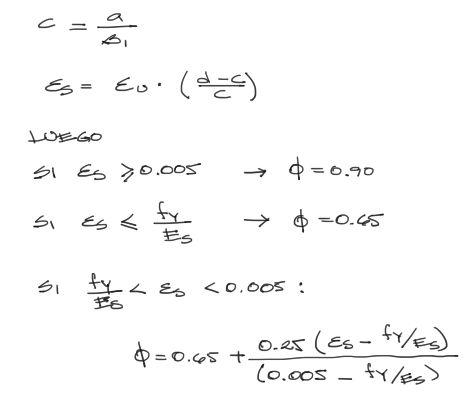 c = a/β₁
εs = εu · ((d-c)/c)
LUEGO
SI εs ⩾ 0.005 → φ = 0.90
SI εs ≤ fy/Es → φ = 0.65
SI fy/Es < εs < 0.005 :
φ = 0.65 + 0.25 (εs - fy/Es)/(0.005 - fy/Es)